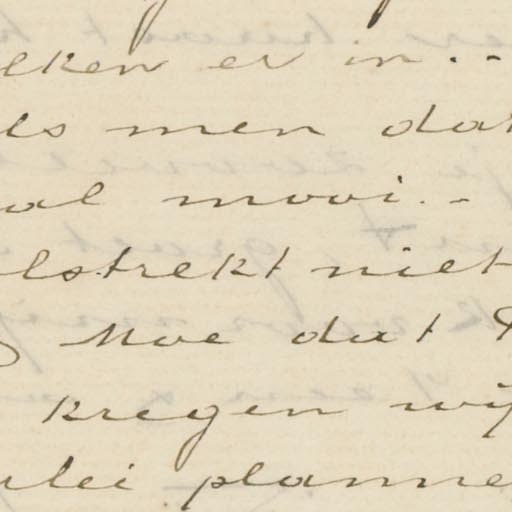 eken er in. --
als men dat
al mooi. --
olstrekt niet
Moe dat
kregen wij
rlei planne